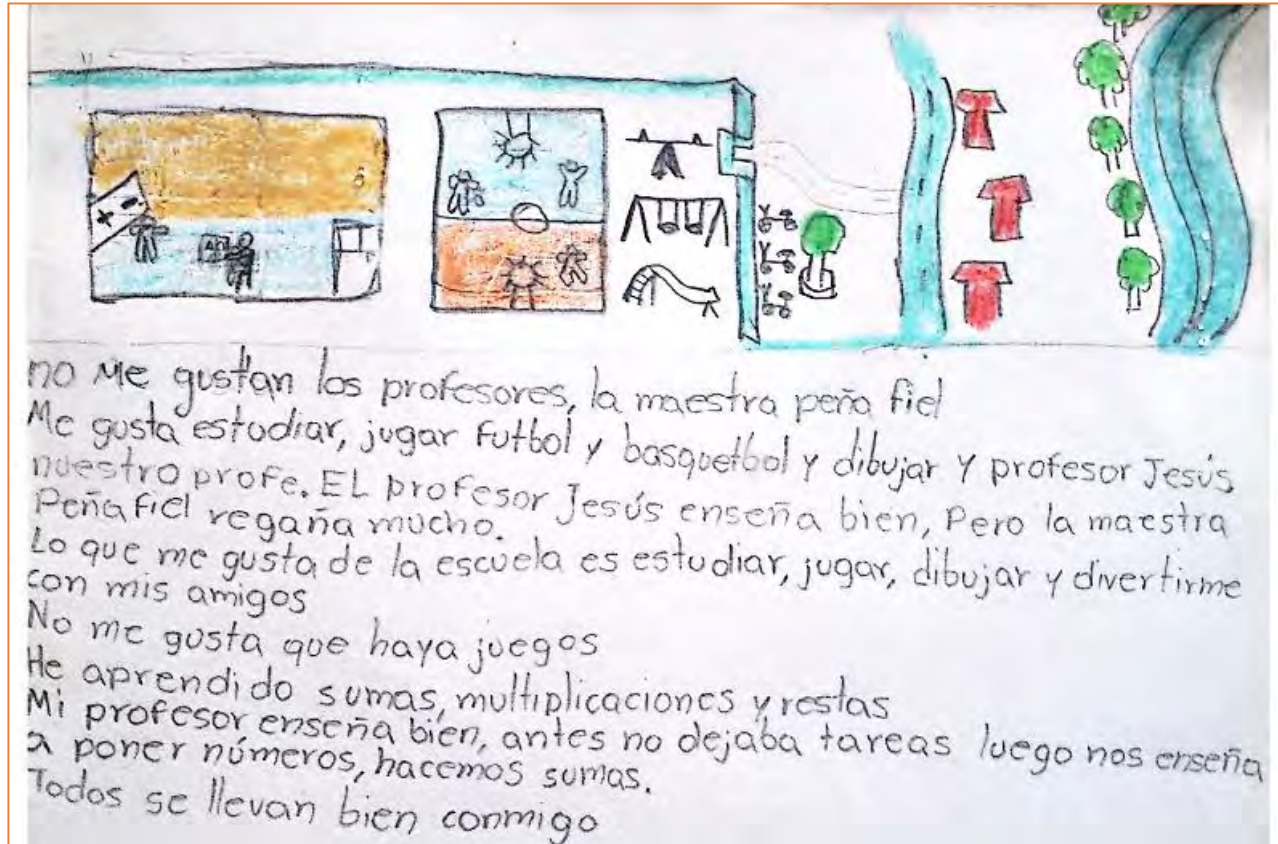 no Me gustan los profesores, la maestra peña fiel
Me gusta estudiar, jugar futbol y basquetbol y dibujar y profesor Jesús
nuestro profe. EL profesor Jesús enseña bien, Pero la maestra
Peñafiel regaña mucho.
Lo que me gusta de la escuela es estudiar, jugar, dibujar y divertirme
con mis amigos
No me gusta que haya juegos
He aprendido sumas, multiplicaciones y restas
Mi profesor enseña bien, antes no dejaba tareas luego nos enseña
a poner números, hacemos sumas.
Todos se llevan bien conmigo